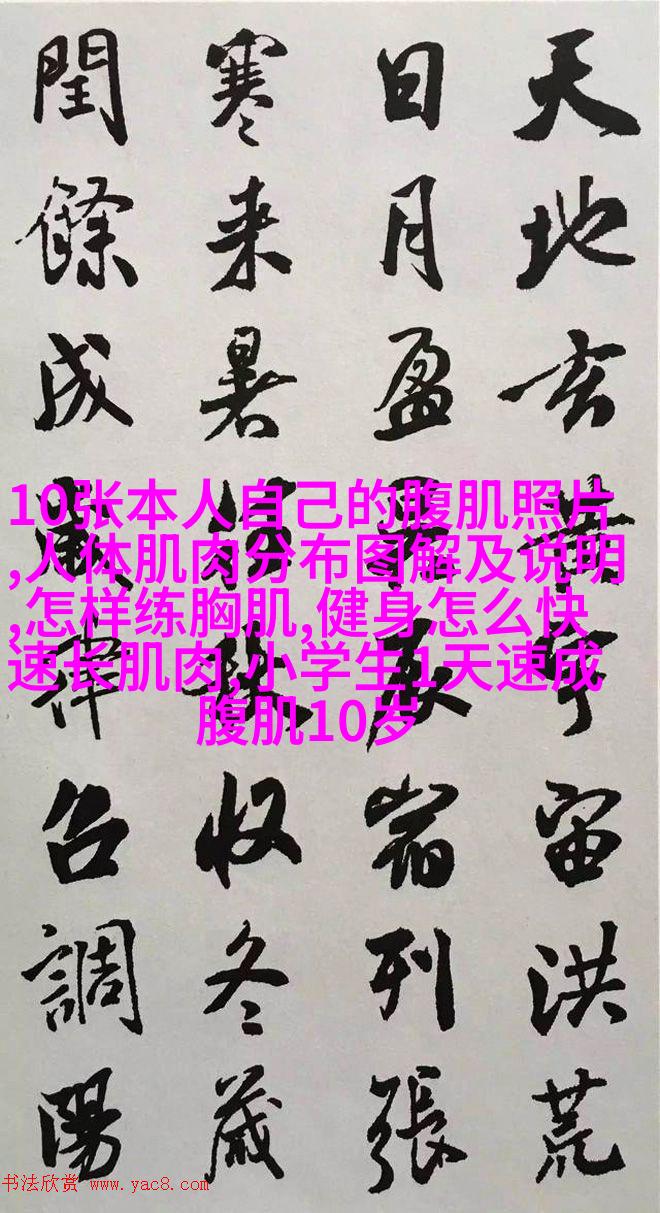 天地玄宙洪荒
日月盈宿列張
寒来暑收冬蔵
閏餘成召調陽
10张本人自己的腹肌照片
,人体肌肉分布图解及说明
,怎样练胸肌,健身怎么快
速长肌肉,小学生1天速成
腹肌10岁
书法欣赏 www.yac8.com